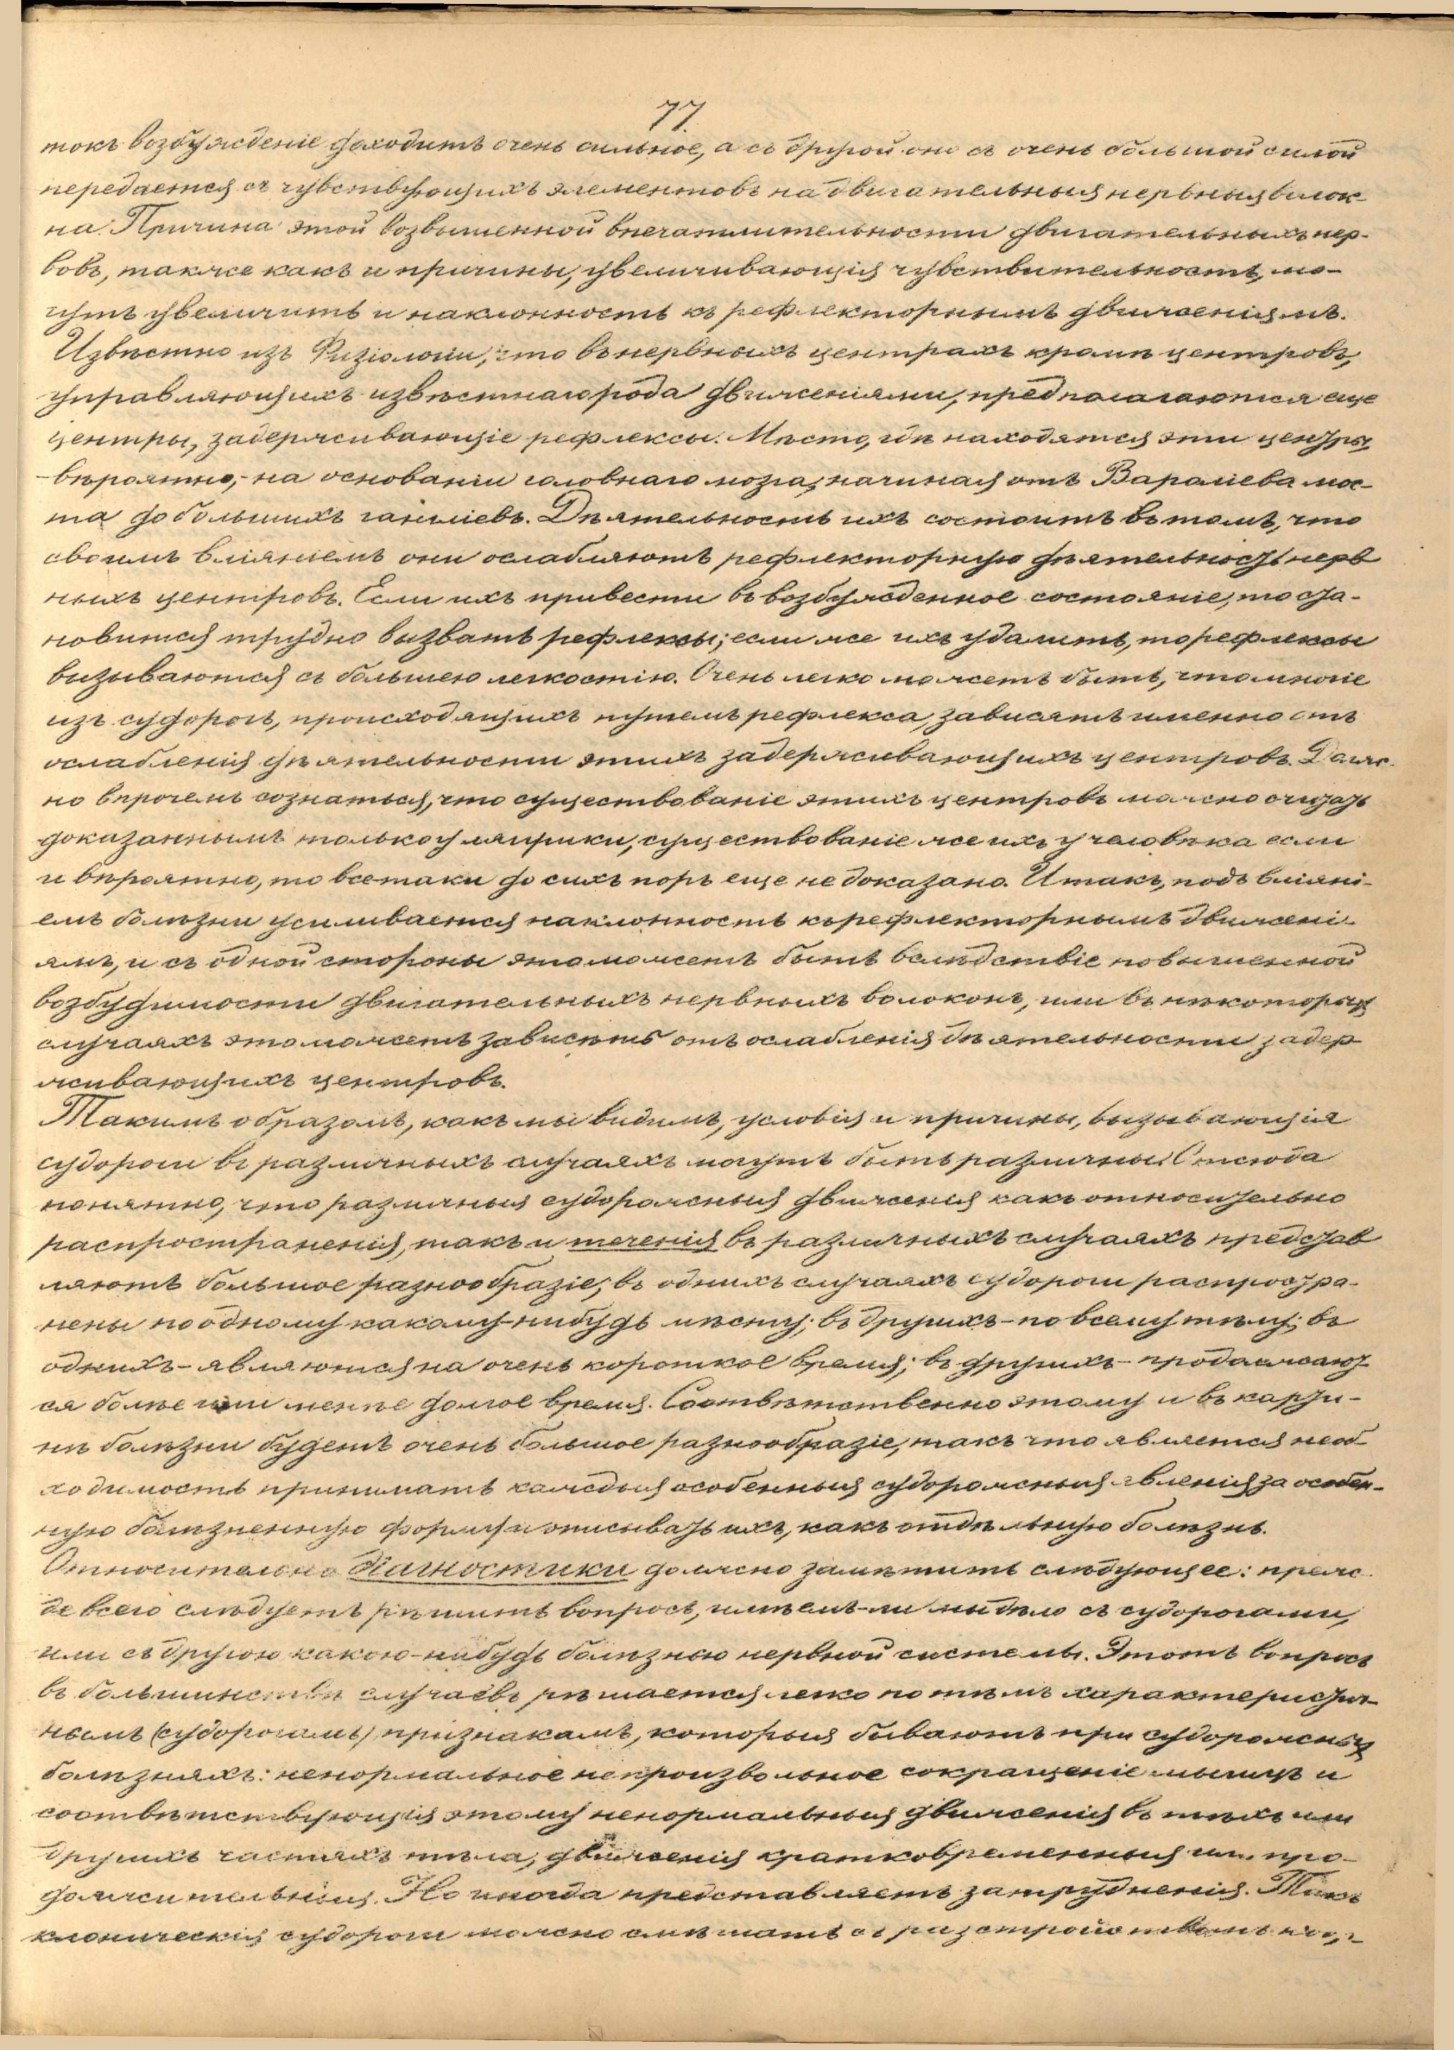 77.
токъ возбужденіе доходитъ очень сильное, а съ другой оно съ очень большой силой
передается съ чувствующихъ элементовъ на двигательныя нервныя волок
на. Причина этой возвышенной впечатлительности двигательныхъ нер-
вовъ, также какъ и причины, увеличивающія чувствительность, мо-
гутъ увеличить и наклонность къ рефлекторнымъ движеніямъ.
Извѣстно изъ Физіологіи, что въ нервныхъ центрахъ кромѣ центровъ,
управляющихъ извѣстнаго рода движеніями, предполагаются еще
центры, задерживающіе рефлексы. Мѣсто, гдѣ находятся эти центры
-вѣроятно,- на основаніи головнаго мозга, начиная отъ Вароліева мос-
та до большихъ гангліевъ. Дѣятельность ихъ состоитъ въ томъ, что
своимъ вліяніемъ они ослабляютъ рефлекторную дѣятельность нерв
ныхъ центровъ. Если ихъ привести въ возбужденное состояніе, то ста-
новится трудно вызвать рефлексы; если же ихъ удалить, то рефлексы
вызываются съ большею легкостію. Очень легко можетъ быть, что многіе
изъ судорогъ, происходящихъ путемъ рефлекса, зависятъ именно отъ
ослабленія дѣятельности этихъ задерживающихъ центровъ. Долж-
но впрочемъ сознаться, что существованіе этихъ центровъ можно считать
доказаннымъ только у лягушки, существованіе же ихъ у человѣка если
и вѣроятно, то всетаки до сихъ поръ еще не доказано. Итакъ, подъ вліяні-
емъ болѣзни усиливается наклонность къ рефлекторнымъ движені-
ямъ, и съ одной стороны это можетъ быть вслѣдствіе повышенной
возбудимости двигательныхъ нервныхъ волоконъ, или въ нѣкоторыхъ
случаяхъ это можетъ зависѣть отъ ослабленія дѣятельности задер
живающихъ центровъ.
Такимъ образомъ, какъ мы видимъ, условія и причины, вызывающія
судороги въ различныхъ случаяхъ могутъ быть различны. Отсюда
понятно, что различныя судорожныя движенія какъ относительно
распространенія, такъ и теченія въ различныхъ случаяхъ представ
ляютъ большое разнообразіе; въ однихъ случаяхъ судороги распростра-
нены по одному какому-нибудь мѣсту; въ другихъ- по всему тѣлу; въ
однихъ- являются на очень короткое время; въ другихъ- продолжают-
ся болѣе или менѣе долгое время. Соотвѣтственно этому и въ карти-
нѣ болѣзни будетъ очень большое разнообразіе, такъ что является необ-
ходимость принимать каждыя особенныя судорожныя явленія за особен-
ную болѣзненную форму и описывать ихъ, какъ отдѣльную болѣзнь.
Относительно Діагностики должно замѣтить слѣдующее: преж-
де всего слѣдуетъ рѣшить вопросъ, имѣемъ-ли мы дѣло съ судорогами,
или съ другою какою-нибудь болѣзнью нервной системы. Этотъ вопросъ
въ большинствѣ случаевъ рѣшается легко по тѣмъ характеристич-
нымъ (судорогамъ) признакамъ, которыя бываютъ при судорожныхъ
болѣзняхъ: ненормальное непроизвольное сокращеніе мышцъ и
соотвѣтствующія этому ненормальныя движенія въ тѣхъ или
другихъ частяхъ тѣла; движенія кратковременныя или про-
должительныя. Но иногда представляетъ затрудненія. Такъ
клоническія судороги можно смѣшать съ разстройствомъ